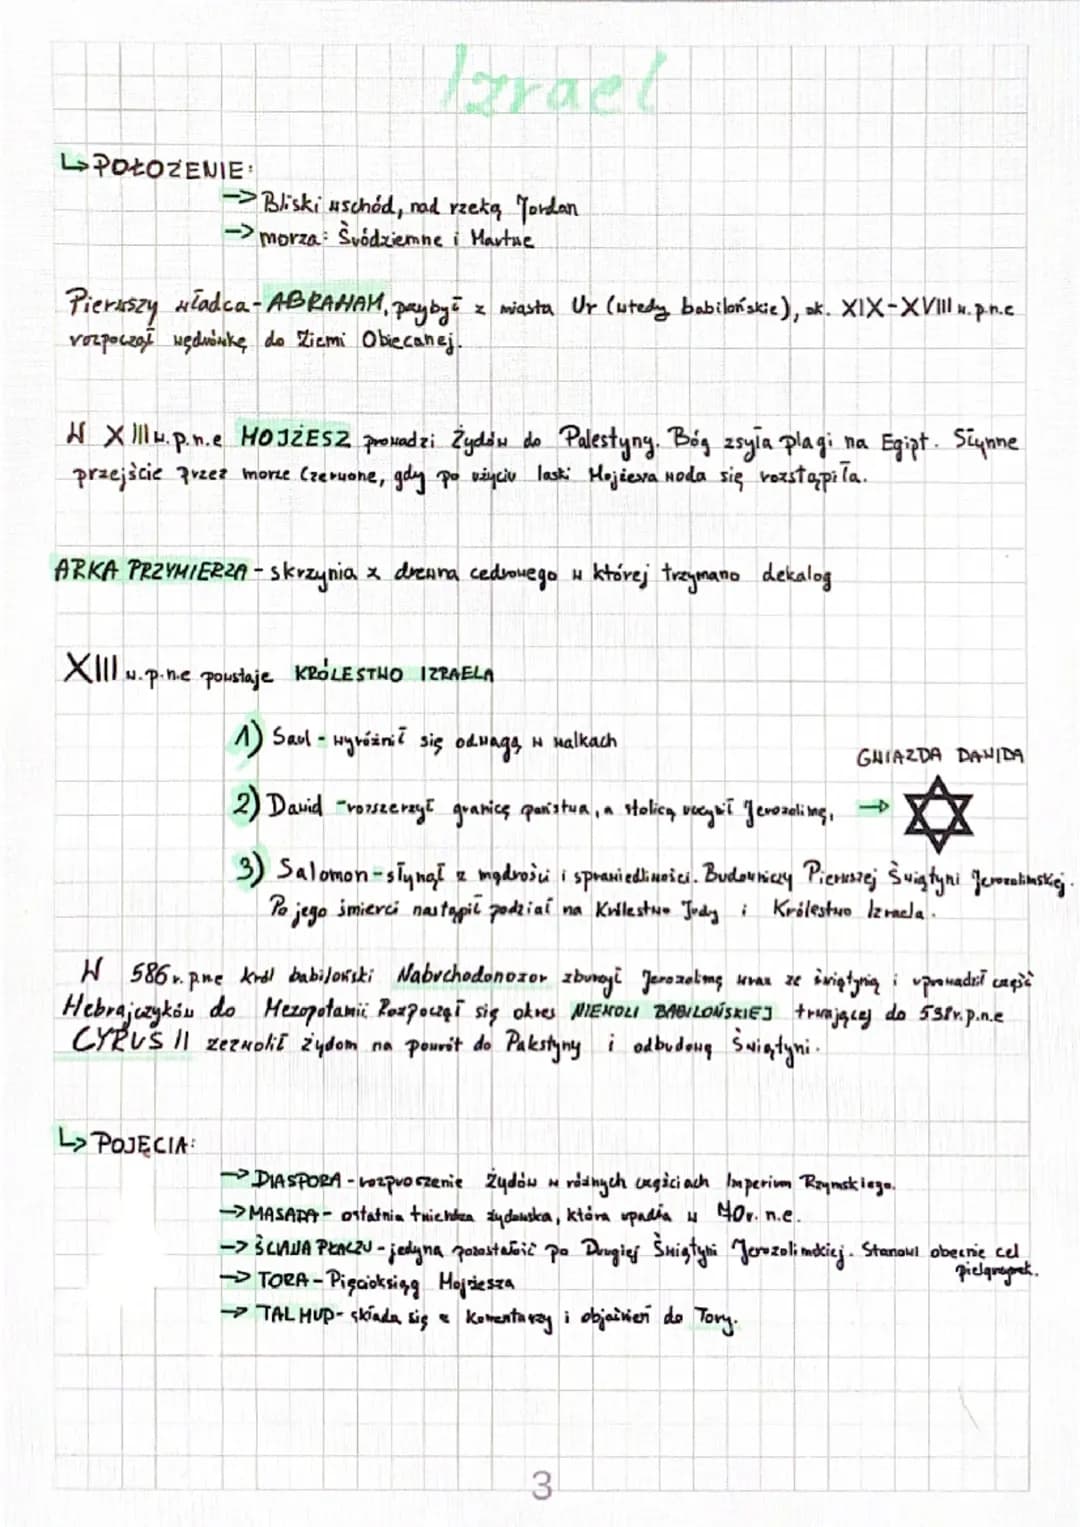 Izrael
↳ POŁOŻENIE:
→ Bliski wschód, nad rzeką Jordan
→ morza: Śródziemne i Martwe
Pierwszy władca - ABRAHAM, przybył z miasta Ur (wtedy babilońskie), ok. XIX-XVIII w.p.n.e
rozpoczął wędrówkę do Ziemi Obiecanej.
W XIII w.p.n.e MOJŻESZ prowadzi Żydów do Palestyny. Bóg zsyła plagi na Egipt. Słynne
przejście przez morze Czerwone, gdy po użyciu laski Mojżesza woda się rozstąpiła.
ARKA PRZYMIERZA - skrzynia z drewna cedrowego w której trzymano dekalog
XIII w.p.n.e powstaje KRÓLESTWO IZRAELA
1) Saul - wyróżnił się odwagą w walkach
GWIAZDA DAWIDA
2) Dawid - rozszerzył granicę państwa, a stolicą uczynił Jerozolimę, →
3) Salomon - słynął z mądrości i sprawiedliwości. Budowniczy Pierwszej Świątyni Jerozolimskiej.
Po jego śmierci nastąpił podział na Królestwo Judy i Królestwo Izraela.
W 586 r. p.n.e król babiloński Nabuchodonozor zburzył Jerozolimę wraz ze świątynią i uprowadził część
Hebrajczyków do Mezopotamii. Rozpoczął się okres NIEWOLI BABILOŃSKIEJ trwającej do 538r.p.n.e
CYRUS II zezwolił żydom na powrót do Palestyny i odbudowę Świątyni.
↳ POJĘCIA:
→ DIASPORA - rozproszenie Żydów w różnych częściach Imperium Rzymskiego.
→ MASADA - ostatnia twierdza żydowska, która upadła w r. n.e.
→ ŚCIANA PŁACZU - jedyna pozostałość po Drugiej Świątyni Jerozolimskiej. Stanowi obecnie cel
pielgrzymek.
→ TORA - Pięcioksiąg Mojżesza
→ TALMUD - składa się z komentarzy i objaśnień do Tory.
3